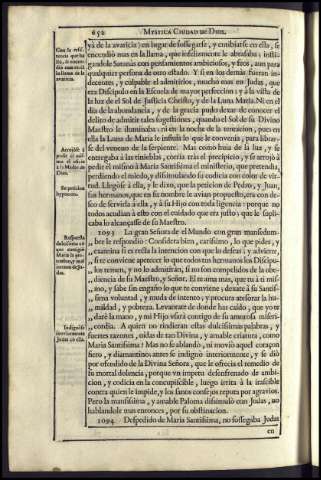 652 MYSTICA CIUDAD DE DIOS.
yà de la avaricia; en lugar de sossegarse, y enfriarse en ella, se
encendiò mas en la llama, que infelizmente le abrasaba; insti-
gandole Satanàs con pensamientos ambiciosos, y feos, aun para
qualquiera persona de otro estado. Y si en los demàs fueran in-
decentes, y culpable el admitirlos, mucho mas en Judas, que
era Discipulo en la Escuela de mayor perfeccion; y à la vista de
la luz de el Sol de Justicia Christo, y de la Luna Maria. Ni en el
dia de la abundancia, y de la gracia pudo dexar de conocer el
delito de admitir tales sugestiones, quando el Sol de su Divino
Maestro le iluminaba: ni en la noche de la tentacion, pues en
ella la Luna de Maria le influìa lo que le convenia, para librar-
se del veneno de la serpiente. Mas como huìa de la luz, y se
entregaba à las tinieblas, corria tràs el precipicio, y se arrojò à
pedir èl mismo à Maria Santissima el ministerio, que pretendia,
perdiendo el miedo, y disimulando su codicia con color de vir-
tud. Llegòse à ella, y le dixo, que la peticion de Pedro, y Juan,
sus hermanos, que en su nombre le avian propuesto, era con de-
seo de servirla à ella, y à su Hijo con toda diligencia: porque no
todos acudian à esto con el cuidado que era justo; que le supli-
caba lo alcançasse de su Maestro.
1093 La gran Señora de el Mundo con gran mansedum-
bre le respondiò: Considera bien, carissimo, lo que pides, y
examina si es recta la intencion con que lo deseas; y advierte,
si te conviene apetecer lo que todos tus hermanos los Discipu-
los temen, y no lo admitiràn, si no son compelidos de la obe-
diencia de su Maestro, y Señor. El te ama mas, que tu à ti mis-
mo, y sabe sin engaño lo que te conviene; dexate à su Santis-
sima voluntad, y muda de intento; y procura atesorar la hu-
mildad, y pobreza. Levantate de donde has caìdo, que yo te
darè la mano, y mi Hijo usarà contigo de su amorosa miseri-
cordia. A quien no rindieran estas dulcissimas palabras, y
fuertes razones, oìdas de tan Divina, y amable criatura, como
Maria Santissima! Mas no se ablandò, ni moviò aquel coraçon
fiero, y diamantino: antes se indignò interiormente, y se diò
por ofendido de la Divina Señora, que le ofrecia el remedio de
su mortal dolencia; porque un impetu desenfrenado de ambi-
cion, y codicia en la concupiscible, luego irrita à la irascible
contra quien le impide, y los sanos consejos reputa por agravios.
Pero la mansissima, y amable Paloma disimulò con Judas, no
hablandole mas entonces, por su obstinacion.
1094 Despedido de Maria Santissima, no sossegaba Judas
en
Arrojòse à
Respuesta
Indignòse
interiormente
Judas con ella.